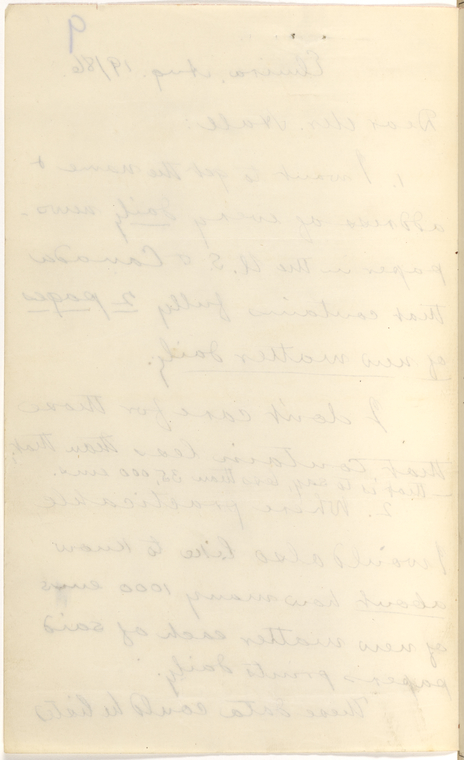 9
Elmira, Aug. 19/86.
Dear Mr. Hall:
1. I want to get the name &
address of every daily news-
paper in the U.S. & Canada
that contains fully 2 pages
of new matter daily.
I don't care for those
that contain less than that,
—that is to say, less than 35,000 ems.
2. Where practicable
I would also like to know
about how many 1000 ems
of new matter each of said
papers prints daily.
These data could be lists